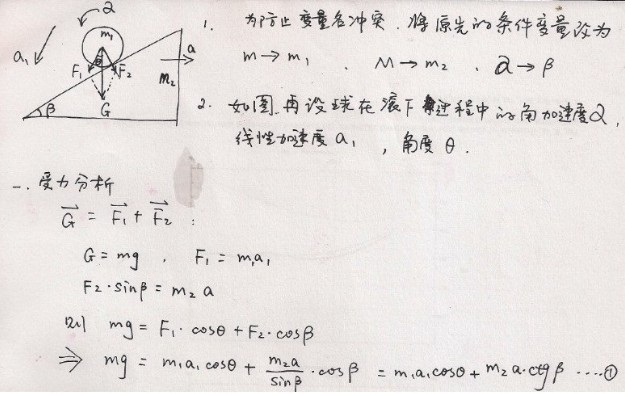 α
m₁
a₁
θ
F₁
F₂
a
m₂
G
β
1. 为防止变量名冲突,将原先的条件变量改为
m→m₁ 、 M→m₂ 、 α→β
2. 如图,再设球在滚下过程中的角加速度α,
线性加速度a₁ ,角度θ.
一. 受力分析
G⃗ = F⃗₁ + F⃗₂ :
G = mg , F₁ = m₁a₁
F₂·sinβ = m₂a
则 mg = F₁·cosθ + F₂·cosβ
⇒ mg = m₁a₁cosθ + m₂a/sinβ·cosβ = m₁a₁cosθ + m₂a·ctgβ ····①